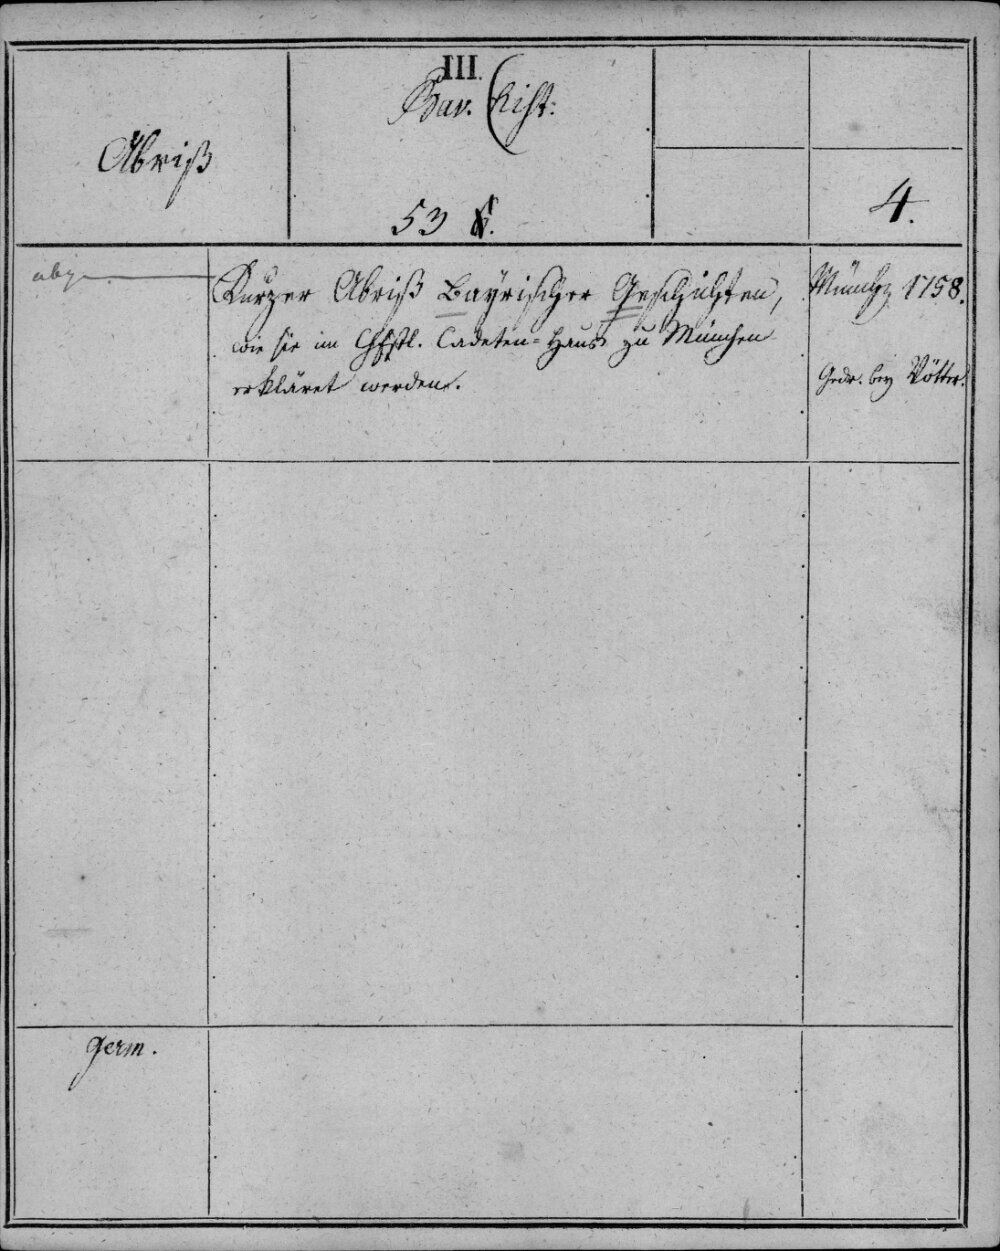 III.
Bav. Hist:
Abriß
4.
53
Kurzer Abriß Bayrischer Geschichten,
wie sie im Chfstl. Cadeten-Haus zu München
erkläret werden.
Münch 1758.
Gedr. bey Vötter.
germ.